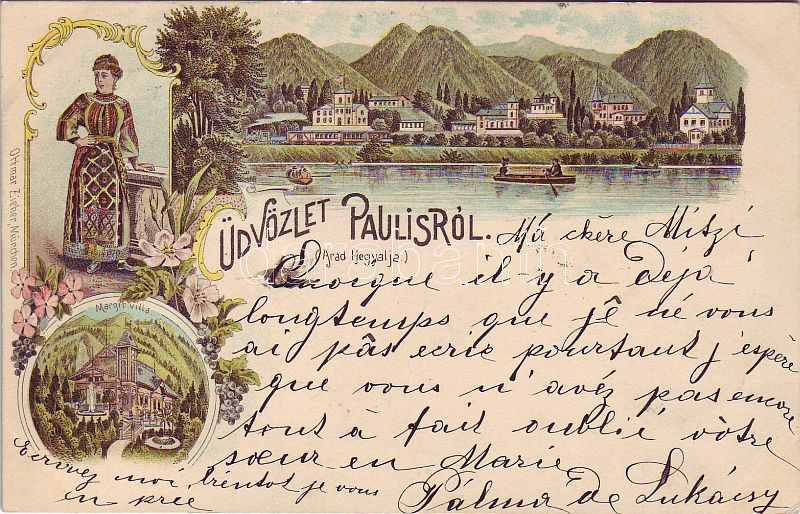 ÜDVÖZLET PAULISRÓL.
(Arad Hegyalja)
Margit villa
Ottmar Zieher, München.
Má chère Mitzi
Quoique il y a déjà
longtemps que jê né vous
ai pâs ecrie pourtant j'espère
que vous n'avéz pas encore
tout à fait oublié vòtre
sœur en Marie
Pálma de Lukácsy
Ecrivez moi, bientot je vous
en priee